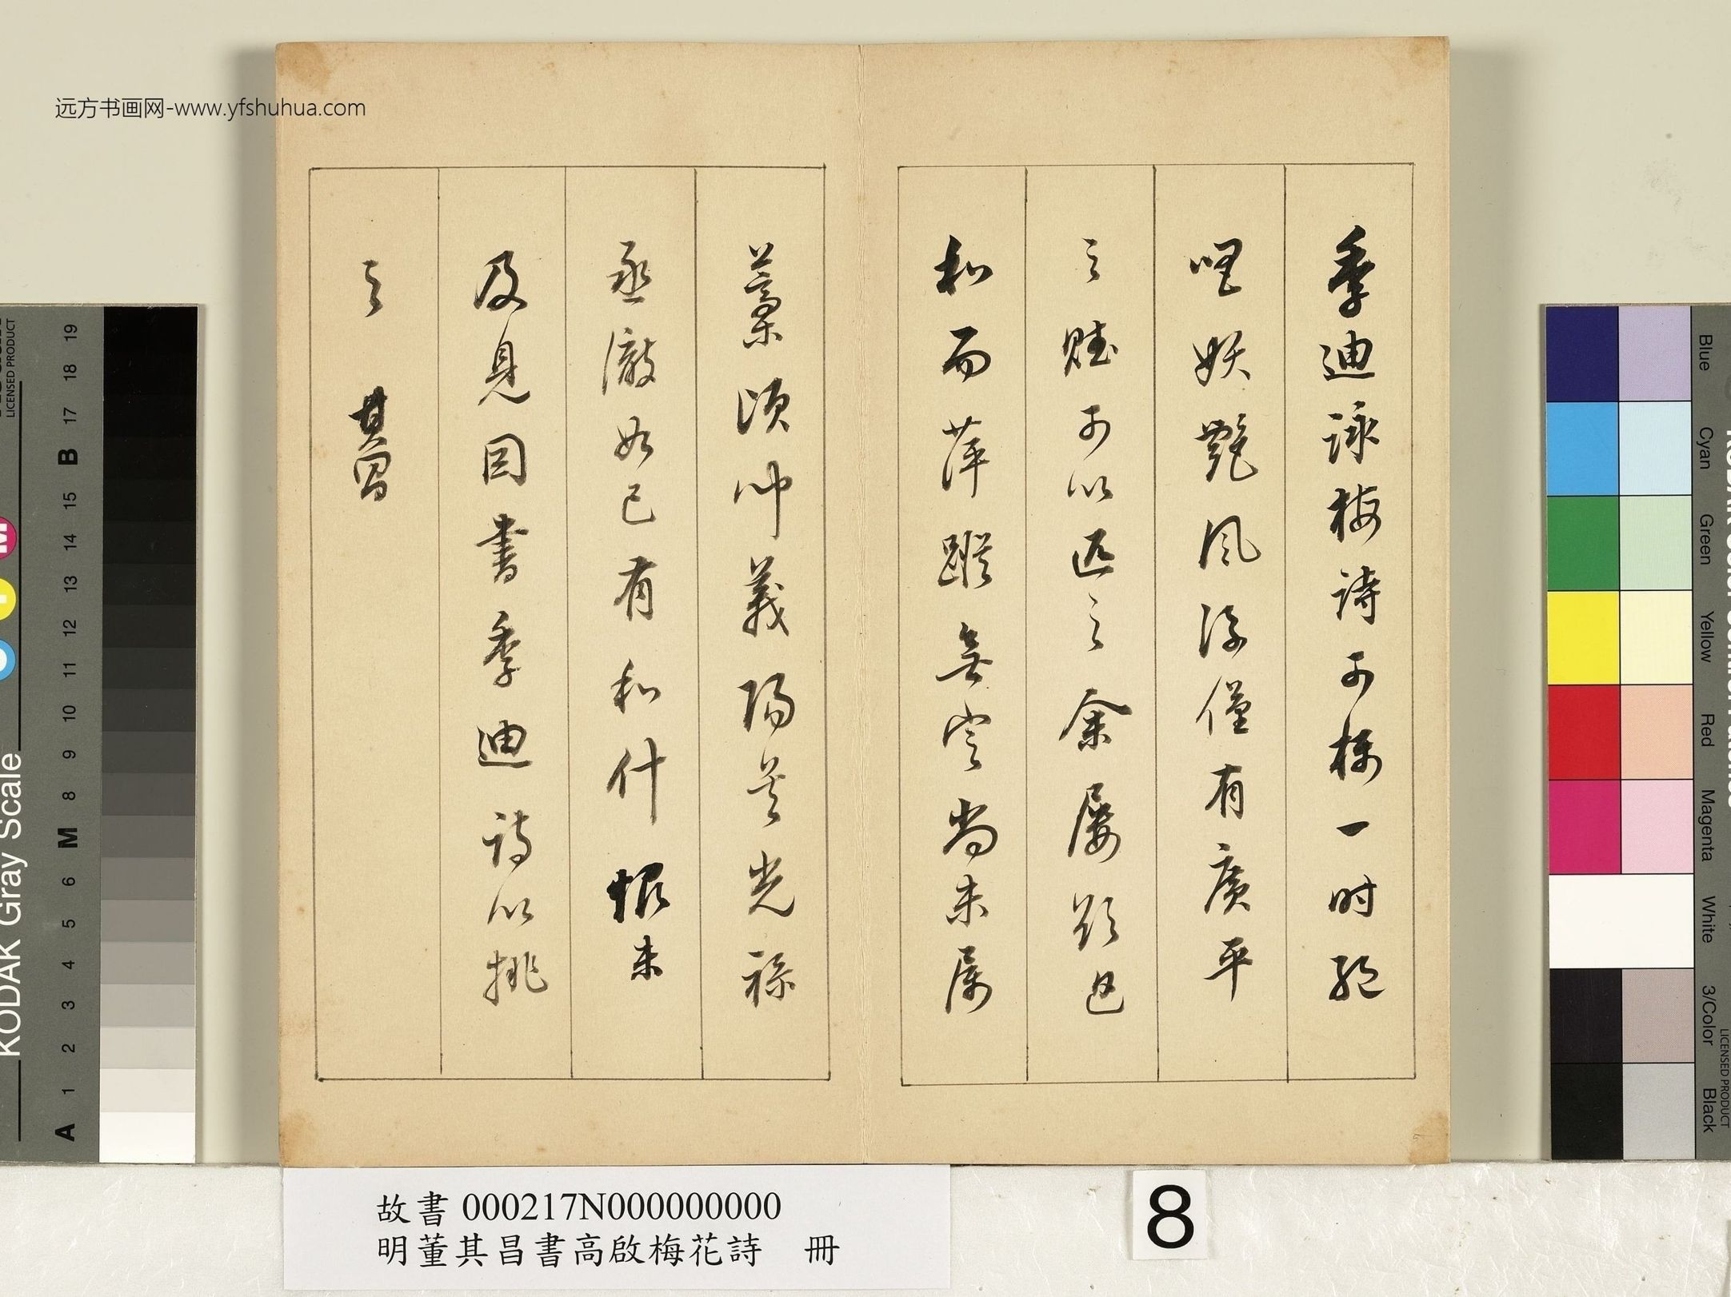 远方书画网-www.yfshuhua.com
季迪詠梅詩可稱一時絕
唱妖艷風流僅有廣平
之賦可以匹之余屢欲追
和而萍蹤無定尚未屬
藁頃聞義陽吳光祿
丞澈如已有和什恨未
及見因書季迪詩以挑
之 其昌
故書 000217N000000000
明董其昌書高啟梅花詩 冊
8
KODAK Gray Scale
LICENSED PRODUCT
A 1 2 3 4 5 6 M 8 9 10 11 12 13 14 15 B 17 18 19
Blue
Cyan
Green
Yellow
Red
Magenta
White
3/Color
Black
LICENSED PRODUCT